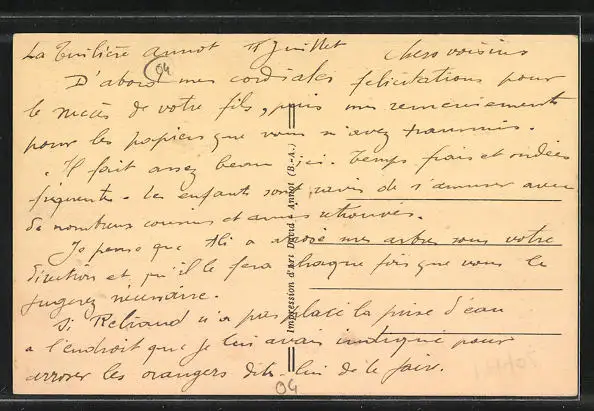 La Tuilière Annot 15 Juillet Chers voisins
04
D'abord mes cordiales felicitations pour
le succès de votre fils, puis mes remerciements
pour les papiers que vous m'avez transmis.
Il fait assez beau ici. Temps frais et ondées
fréquentes - les enfants sont ravis de s'amuser avec
de nombreux cousins et amis retrouvés.
Je pense que Ali a arrosé mes arbres sous votre
direction et qu'il le fera chaque fois que vous le
jugerez nécessaire.
Si n'a pas placé la prise d'eau
a l'endroit que je lui avais indiqué pour
arroser les orangers dites-lui de le faire.
Impression d'art David - Annot (B.-A.)
04